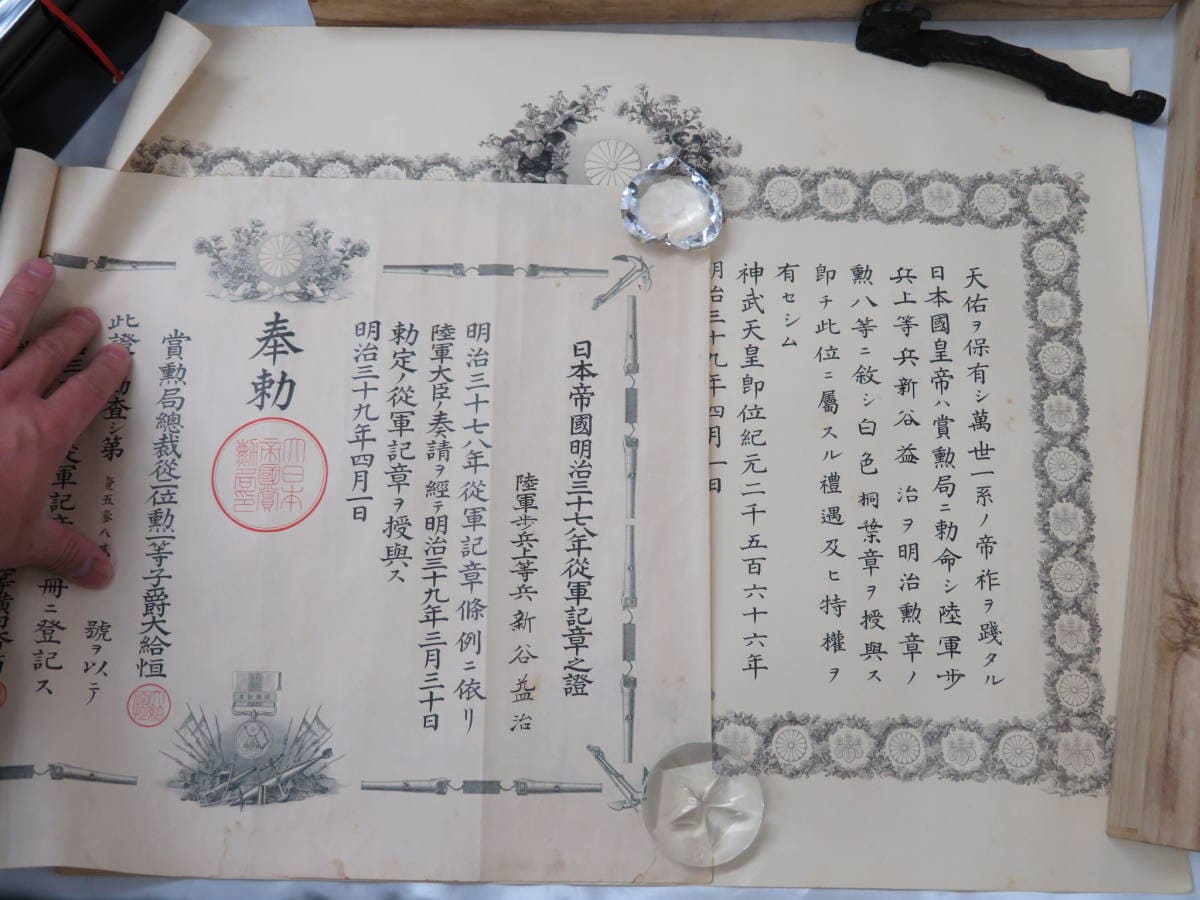 天佑ヲ保有シ萬世一系ノ帝祚ヲ踐タル
日本國皇帝ハ賞勲局ニ勅命シ陸軍步
兵上等兵新谷益治ヲ明治勲章ノ
勲八等ニ敘シ白色桐葉章ヲ授與ス
卽チ此位ニ屬スル禮遇及ヒ特權ヲ
有セシム
神武天皇卽位紀元二千五百六十六年
月治三十九年四月一日
日本帝國明治三十七八年從軍記章之證
陸軍步兵上等兵新谷益治
明治三十七八年從軍記章條例ニ依リ
陸軍大臣ノ奏請ヲ經テ明治三十九年三月三十日
勅定ノ從軍記章ヲ授與ス
明治三十九年四月一日
奉勅
大日本
帝國賞
勲局印
賞勲局總裁從二位勲一等子爵大給恒
此證
勘査シ第
號ヲ以テ
從軍記章
冊ニ登記ス